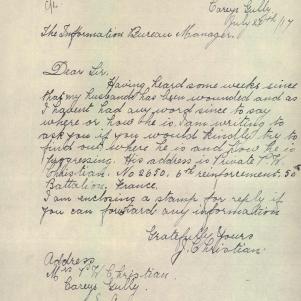 c/o
Careys Gully
July 28th /17
The Information Bureau Manager.
Dear Sir.
Having heard some weeks since
that my husband has been wounded and as
I hadent had any word since to say
where or how he is. I am writing to
ask you if you would kindly try to
find out where he is and how he is
progressing. His address is Private T. W.
Christian. No 2650. 6th reinforcement. 50th
Battalion, France.
I am enclosing a stamp for reply if
you can forward any information
Gratefully Yours
J. Christian.
Address
Mrs T W Christian.
Careys Gully.